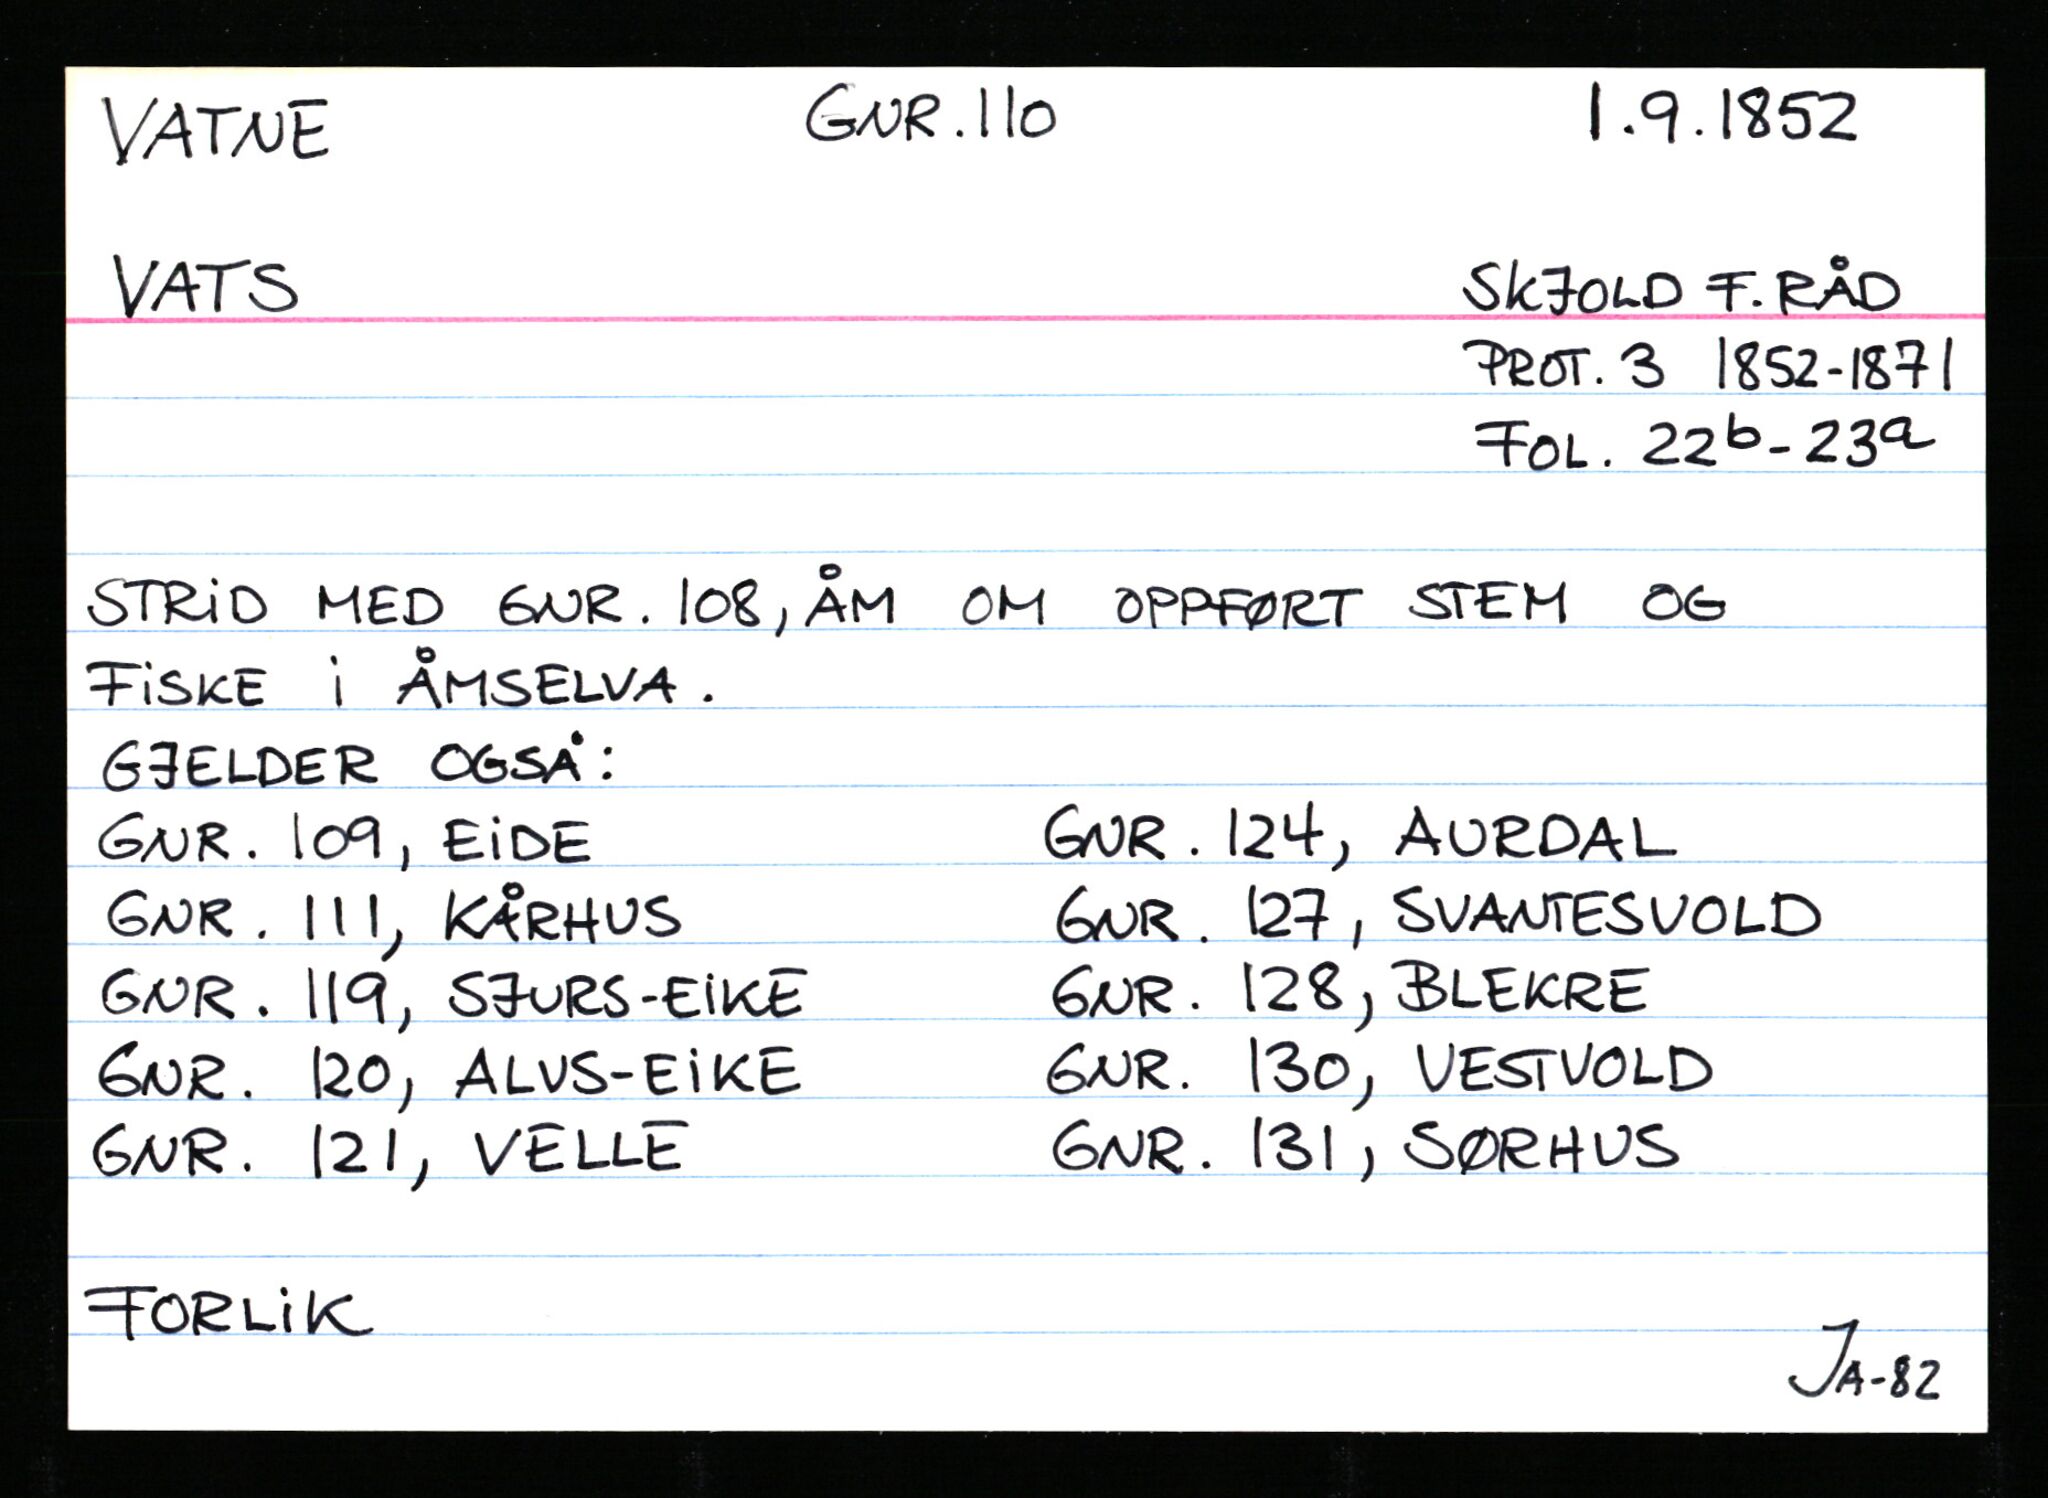 VATNE GNR.110 1.9.1852
VATS SKJOLD F.RÅD
PROT. 3 1852-1871
FOL. 22b-23a
STRID MED GNR. 108, ÅM OM OPPFØRT STEM OG
FISKE I ÅMSELVA.
GJELDER OGSÅ:
GNR. 109, EIDE GNR. 124, AURDAL
GNR. 111, KÅRHUS GNR. 127, SVANTESVOLD
GNR. 119, SJURS-EIKE GNR. 128, BLEKRE
GNR. 120, ALVS-EIKE GNR. 130, VESTVOLD
GNR. 121, VELLE GNR. 131, SØRHUS
FORLIK
JA-82